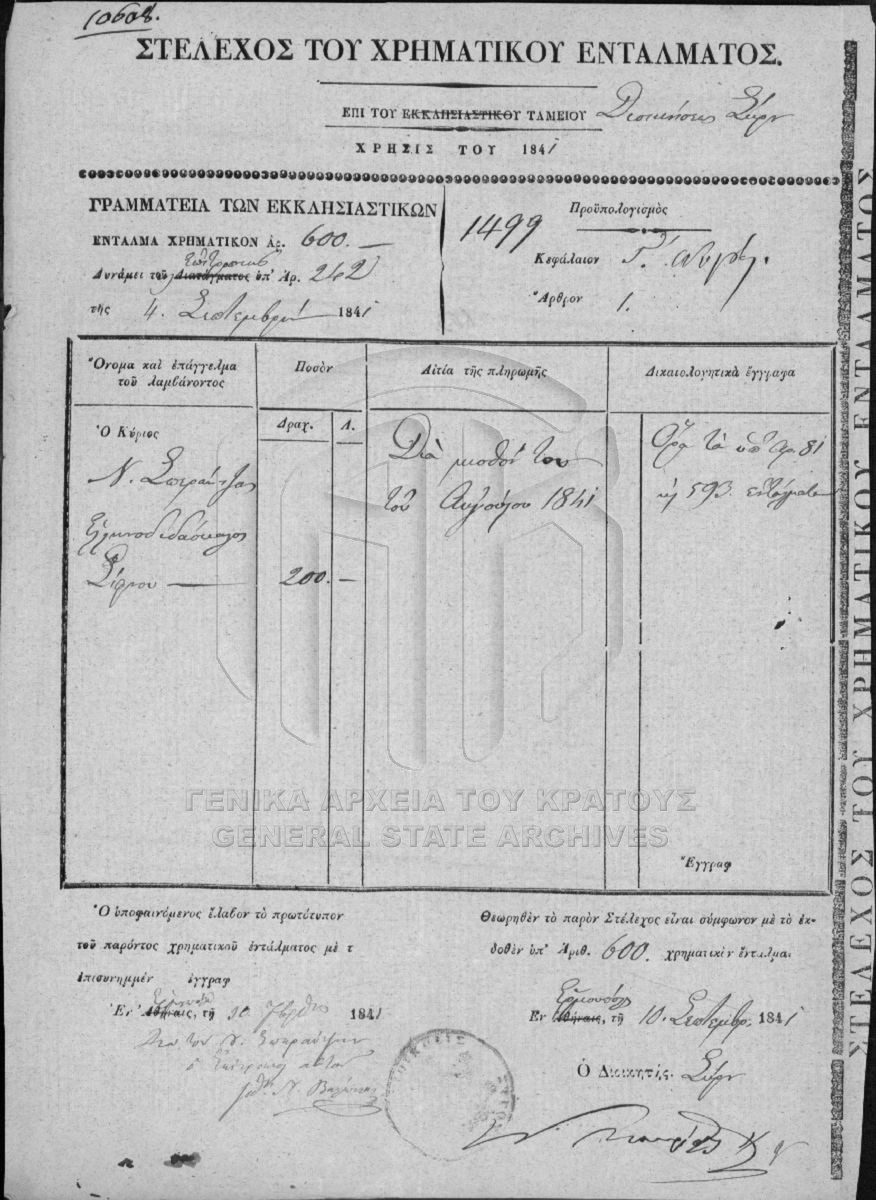 10608.
ΣΤΕΛΕΧΟΣ ΤΟΥ ΧΡΗΜΑΤΙΚΟΥ ΕΝΤΑΛΜΑΤΟΣ.
ΕΠΙ ΤΟΥ ΕΚΚΛΗΣΙΑΣΤΙΚΟΥ ΤΑΜΕΙΟΥ Διοικήσεως Σύρου
ΧΡΗΣΙΣ ΤΟΥ 1841
ΓΡΑΜΜΑΤΕΙΑ ΤΩΝ ΕΚΚΛΗΣΙΑΣΤΙΚΩΝ
ΕΝΤΑΛΜΑ ΧΡΗΜΑΤΙΚΟΝ Ἀρ. 600.—
Δυνάμει τοῦ Διατάγματος ὑπ' Ἀρ. 242
τῆς 4. Σεπτεμβρίου 1841
1499
Προϋπολογισμὸς
Κεφάλαιον Γ.
Ἄρθρον 1.
Ὄνομα καὶ ἐπάγγελμα τοῦ λαμβάνοντος
Ποσὸν
Αἰτία τῆς πληρωμῆς
Δικαιολογητικὰ ἔγγραφα
Δραχ. Λ.
Ὁ Κύριος
Ν.
Ἑλληνοδιδάσκαλος
Σίφνου — 200. —
Διὰ μισθόν του
τοῦ Αὐγούστου 1841
Ὅρα τὸ ὑπ' Ἀρ. 81
κ 593.
Ἔγγραφ
Ὁ ὑποφαινόμενος ἔλαβον τὸ πρωτότυπον
τοῦ παρόντος χρηματικοῦ ἐντάλματος μὲ τ
ἐπισυνημμέν ἐγγραφ
Ἐν Ἀθήναις, τῇ 10. 7βρίου 1841
Θεωρηθὲν τὸ παρὸν Στέλεχος εἶναι σύμφωνον μὲ τὸ ἐκ-
δοθὲν ὑπ' Ἀριθ. 600. χρηματικὸν ἔνταλμα.
Ἑρμουπόλει
Ἐν Ἀθήναις, τῇ 10. Σεπτεμβρ. 1841
Ὁ Διοικητής Σύρου
ΣΤΕΛΕΧΟΣ ΤΟΥ ΧΡΗΜΑΤΙΚΟΥ ΕΝΤΑΛΜΑΤΟΣ
ΓΕΝΙΚΑ ΑΡΧΕΙΑ ΤΟΥ ΚΡΑΤΟΥΣ
GENERAL STATE ARCHIVES